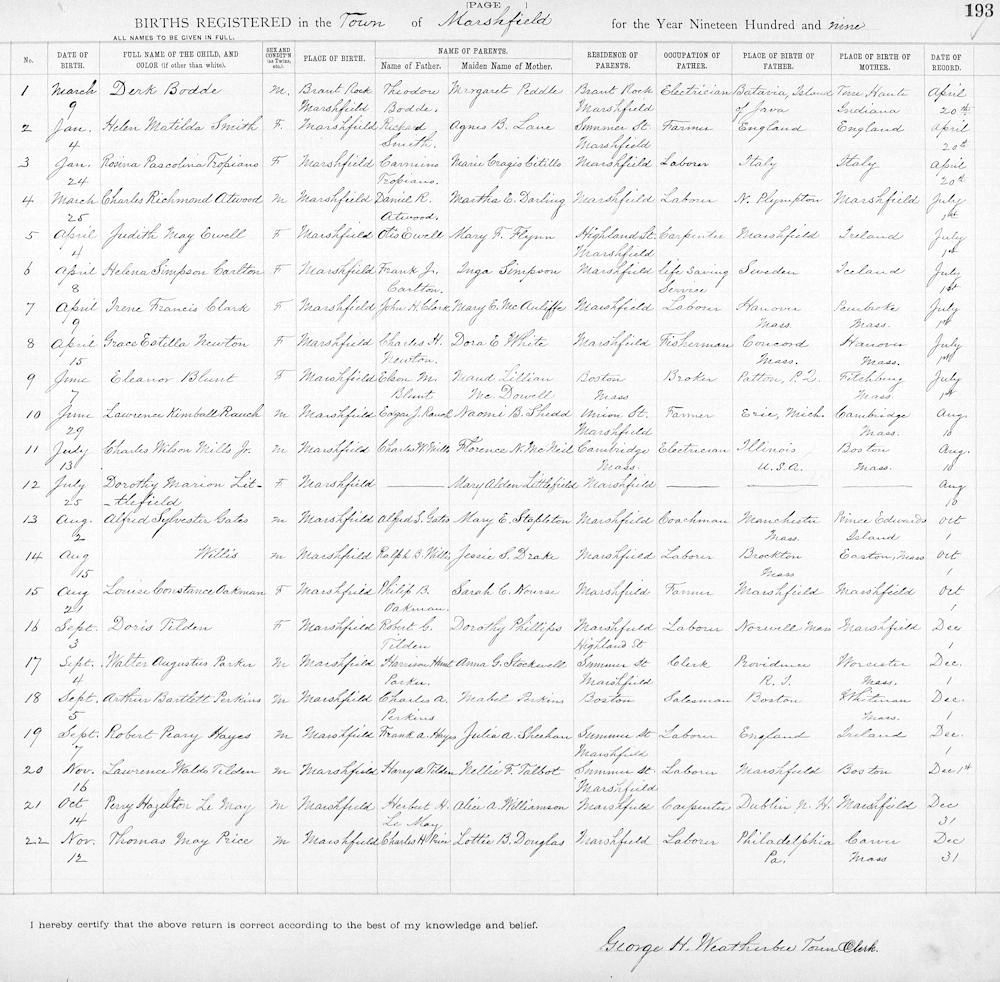 [PAGE ]
193
BIRTHS REGISTERED in the Town of Marshfield for the Year Nineteen Hundred and nine
ALL NAMES TO BE GIVEN IN FULL.
No. DATE OF BIRTH. FULL NAME OF THE CHILD, AND COLOR (if other than white). SEX AND CONDIT'N (as Twins, etc.) PLACE OF BIRTH. NAME OF PARENTS. Name of Father. Maiden Name of Mother. RESIDENCE OF PARENTS. OCCUPATION OF FATHER. PLACE OF BIRTH OF FATHER. PLACE OF BIRTH OF MOTHER. DATE OF RECORD.
1 March Derk Bodde M. Brant Rock Theodore Margaret Peddle Brant Rock Electrician Batavia, Island Terre Haute April
9 Marshfield Bodde. Marshfield of Java Indiana 20th
2 Jan. Helen Matilda Smith F. Marshfield Richard Agnes B. Lane Summer St. Farmer England England April
4 Smith. Marshfield 20th
3 Jan. Rosina Pascolina Tropiano F Marshfield Carmino Marie Cragio Citillo Marshfield Laborer Italy Italy April
24 Tropiano. 20th
4 March Charles Richmond Atwood M Marshfield Daniel R. Martha E. Darling Marshfield Laborer N. Plympton Marshfield July
25 Atwood. 1st
5 April Judith May Ewell F Marshfield Otis Ewell Mary F. Flynn Highland St. Carpenter Marshfield Ireland July
4 Marshfield 1st
6 April Helena Simpson Carlton F Marshfield Frank Jr. Inga Simpson Marshfield Life Saving Sweden Iceland July
8 Carlton. Service 1st
7 April Irene Francis Clark F Marshfield John H. Clark Mary E. McAuliffe Marshfield Laborer Hanover Pembroke July
9 Mass. Mass. 1st
8 April Grace Estella Newton F Marshfield Charles H. Dora E. White Marshfield Fisherman Concord Hanover July
15 Newton. Mass. Mass. 1st
9 June Eleanor Blunt F Marshfield Elson M. Maud Lillian Boston Broker Patton, P.Q. Fitchburg July
7 Blunt McDowell Mass Mass 1st
10 June Lawrence Kimball Rauch M Marshfield Edgar J. Rauch Naomi B. Shedd Union St. Farmer Erie, Mich. Cambridge Aug.
29 Marshfield Mass. 10
11 July Charles Wilson Mills Jr. M Marshfield Charles W. Mills Florence N. McNeil Cambridge Electrician Illinois Boston Aug.
13 Mass. U.S.A. Mass. 10
12 July Dorothy Marion Lit- F Marshfield Mary Alden Littlefield Marshfield Aug
25 -tlefield 10
13 Aug. Alfred Sylvester Gates M Marshfield Alfred S. Gates Mary E. Stapleton Marshfield Coachman Manchester Prince Edwards Oct
2 Mass. Island 1
14 Aug Willis M Marshfield Ralph B. Willis Jessie S. Drake Marshfield Laborer Brockton Easton, Mass Oct
15 Mass 1
15 Aug Louise Constance Oakman F Marshfield Philip B. Sarah C. Nourse Marshfield Farmer Marshfield Marshfield Oct
21 Oakman. 1
16 Sept. Doris Tilden F Marshfield Robert G. Dorothy Phillips Marshfield Laborer Norwell Mass Marshfield Dec
3 Tilden Highland St 1
17 Sept. Walter Augustus Parker M Marshfield Harrison Hunt Anna G. Stockwell Summer St Clerk Providence Worcester Dec.
4 Parker. Marshfield R. I. Mass. 1
18 Sept. Arthur Bartlett Perkins M Marshfield Charles A. Mabel Perkins Boston Salesman Boston Whitman Dec.
5 Perkins Mass. 1
19 Sept. Robert Peary Hayes M Marshfield Frank A. Hayes Julia A. Sheehan Summer St Laborer England Ireland Dec.
7 Marshfield 1
20 Nov. Lawrence Waldo Tilden M Marshfield Harry A. Tilden Nellie F. Talbot Summer St. Laborer Marshfield Boston Dec 1st
16 Marshfield
21 Oct Perry Hazelton Le May M Marshfield Herbert H. Alice A. Williamson Marshfield Carpenter Dublin N. H. Marshfield Dec
14 Le May 31
22 Nov. Thomas May Price M Marshfield Charles H. Price Lottie B. Douglas Marshfield Laborer Philadelphia Carver Dec
12 Pa. Mass 31
I hereby certify that the above return is correct according to the best of my knowledge and belief.
George H. Weatherbee Town Clerk.